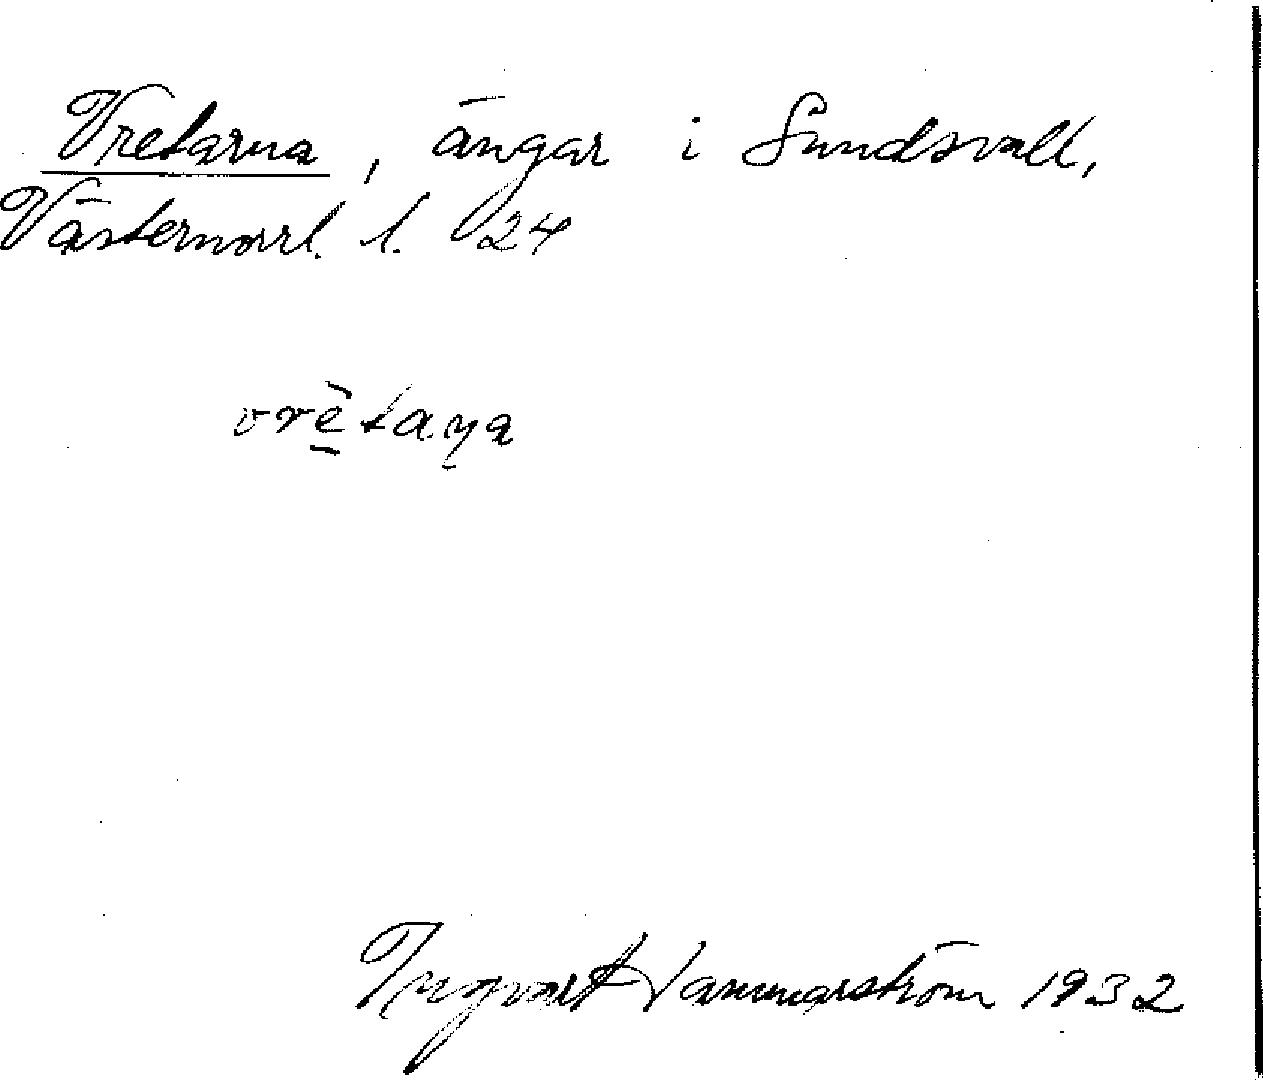 Vretarna, ängar i Sundsvall,
Västernorrl. l. 24
vrètaṇa
Hammarström 1932